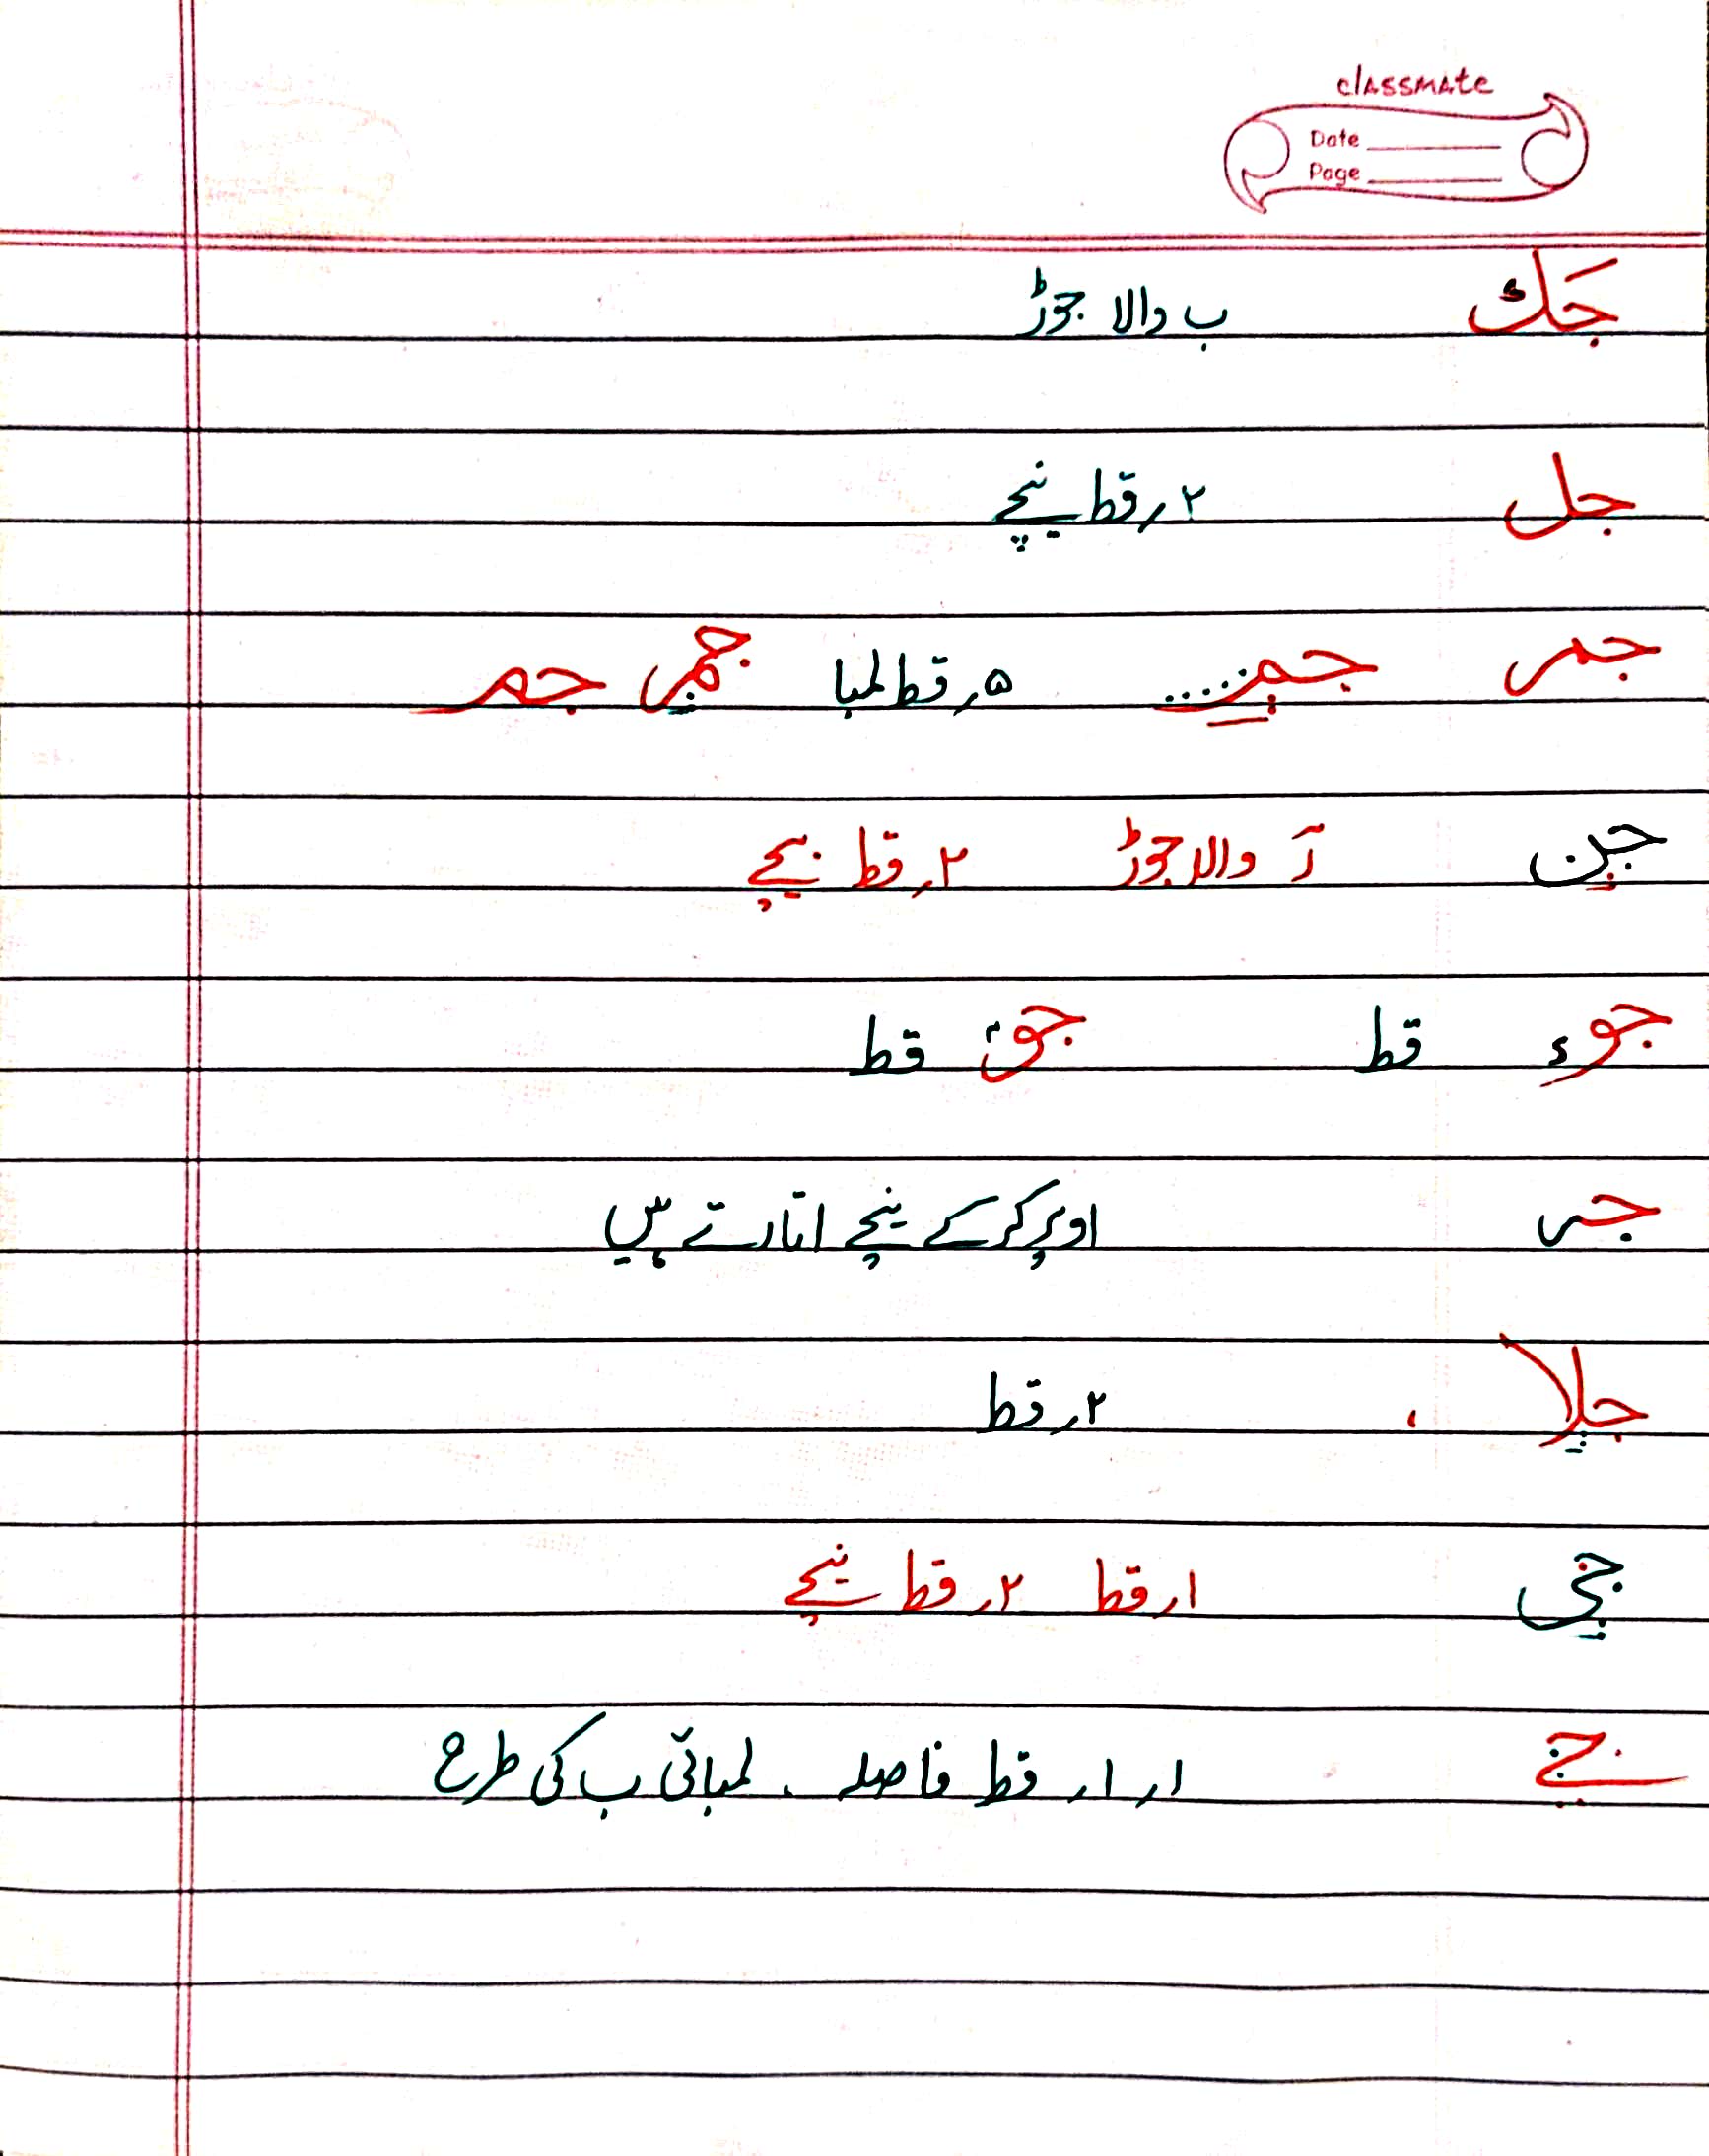 classmate
Date
Page
جک ب والا جوڑ
جل ۲ر قط نیچے
جمر جمر ۵ر قط لمبا جمر جمر
جن آر والا جوڑ ۲ر قط نیچے
جو قط جو قط
جہ اوپر کر کے نیچے اتارتے ہیں
جلا ۲ر قط
جی ۱ر قط ۲ر قط نیچے
جے ۱ر ۱ر قط فاصلہ ۔ لمبائی ب کی طرح